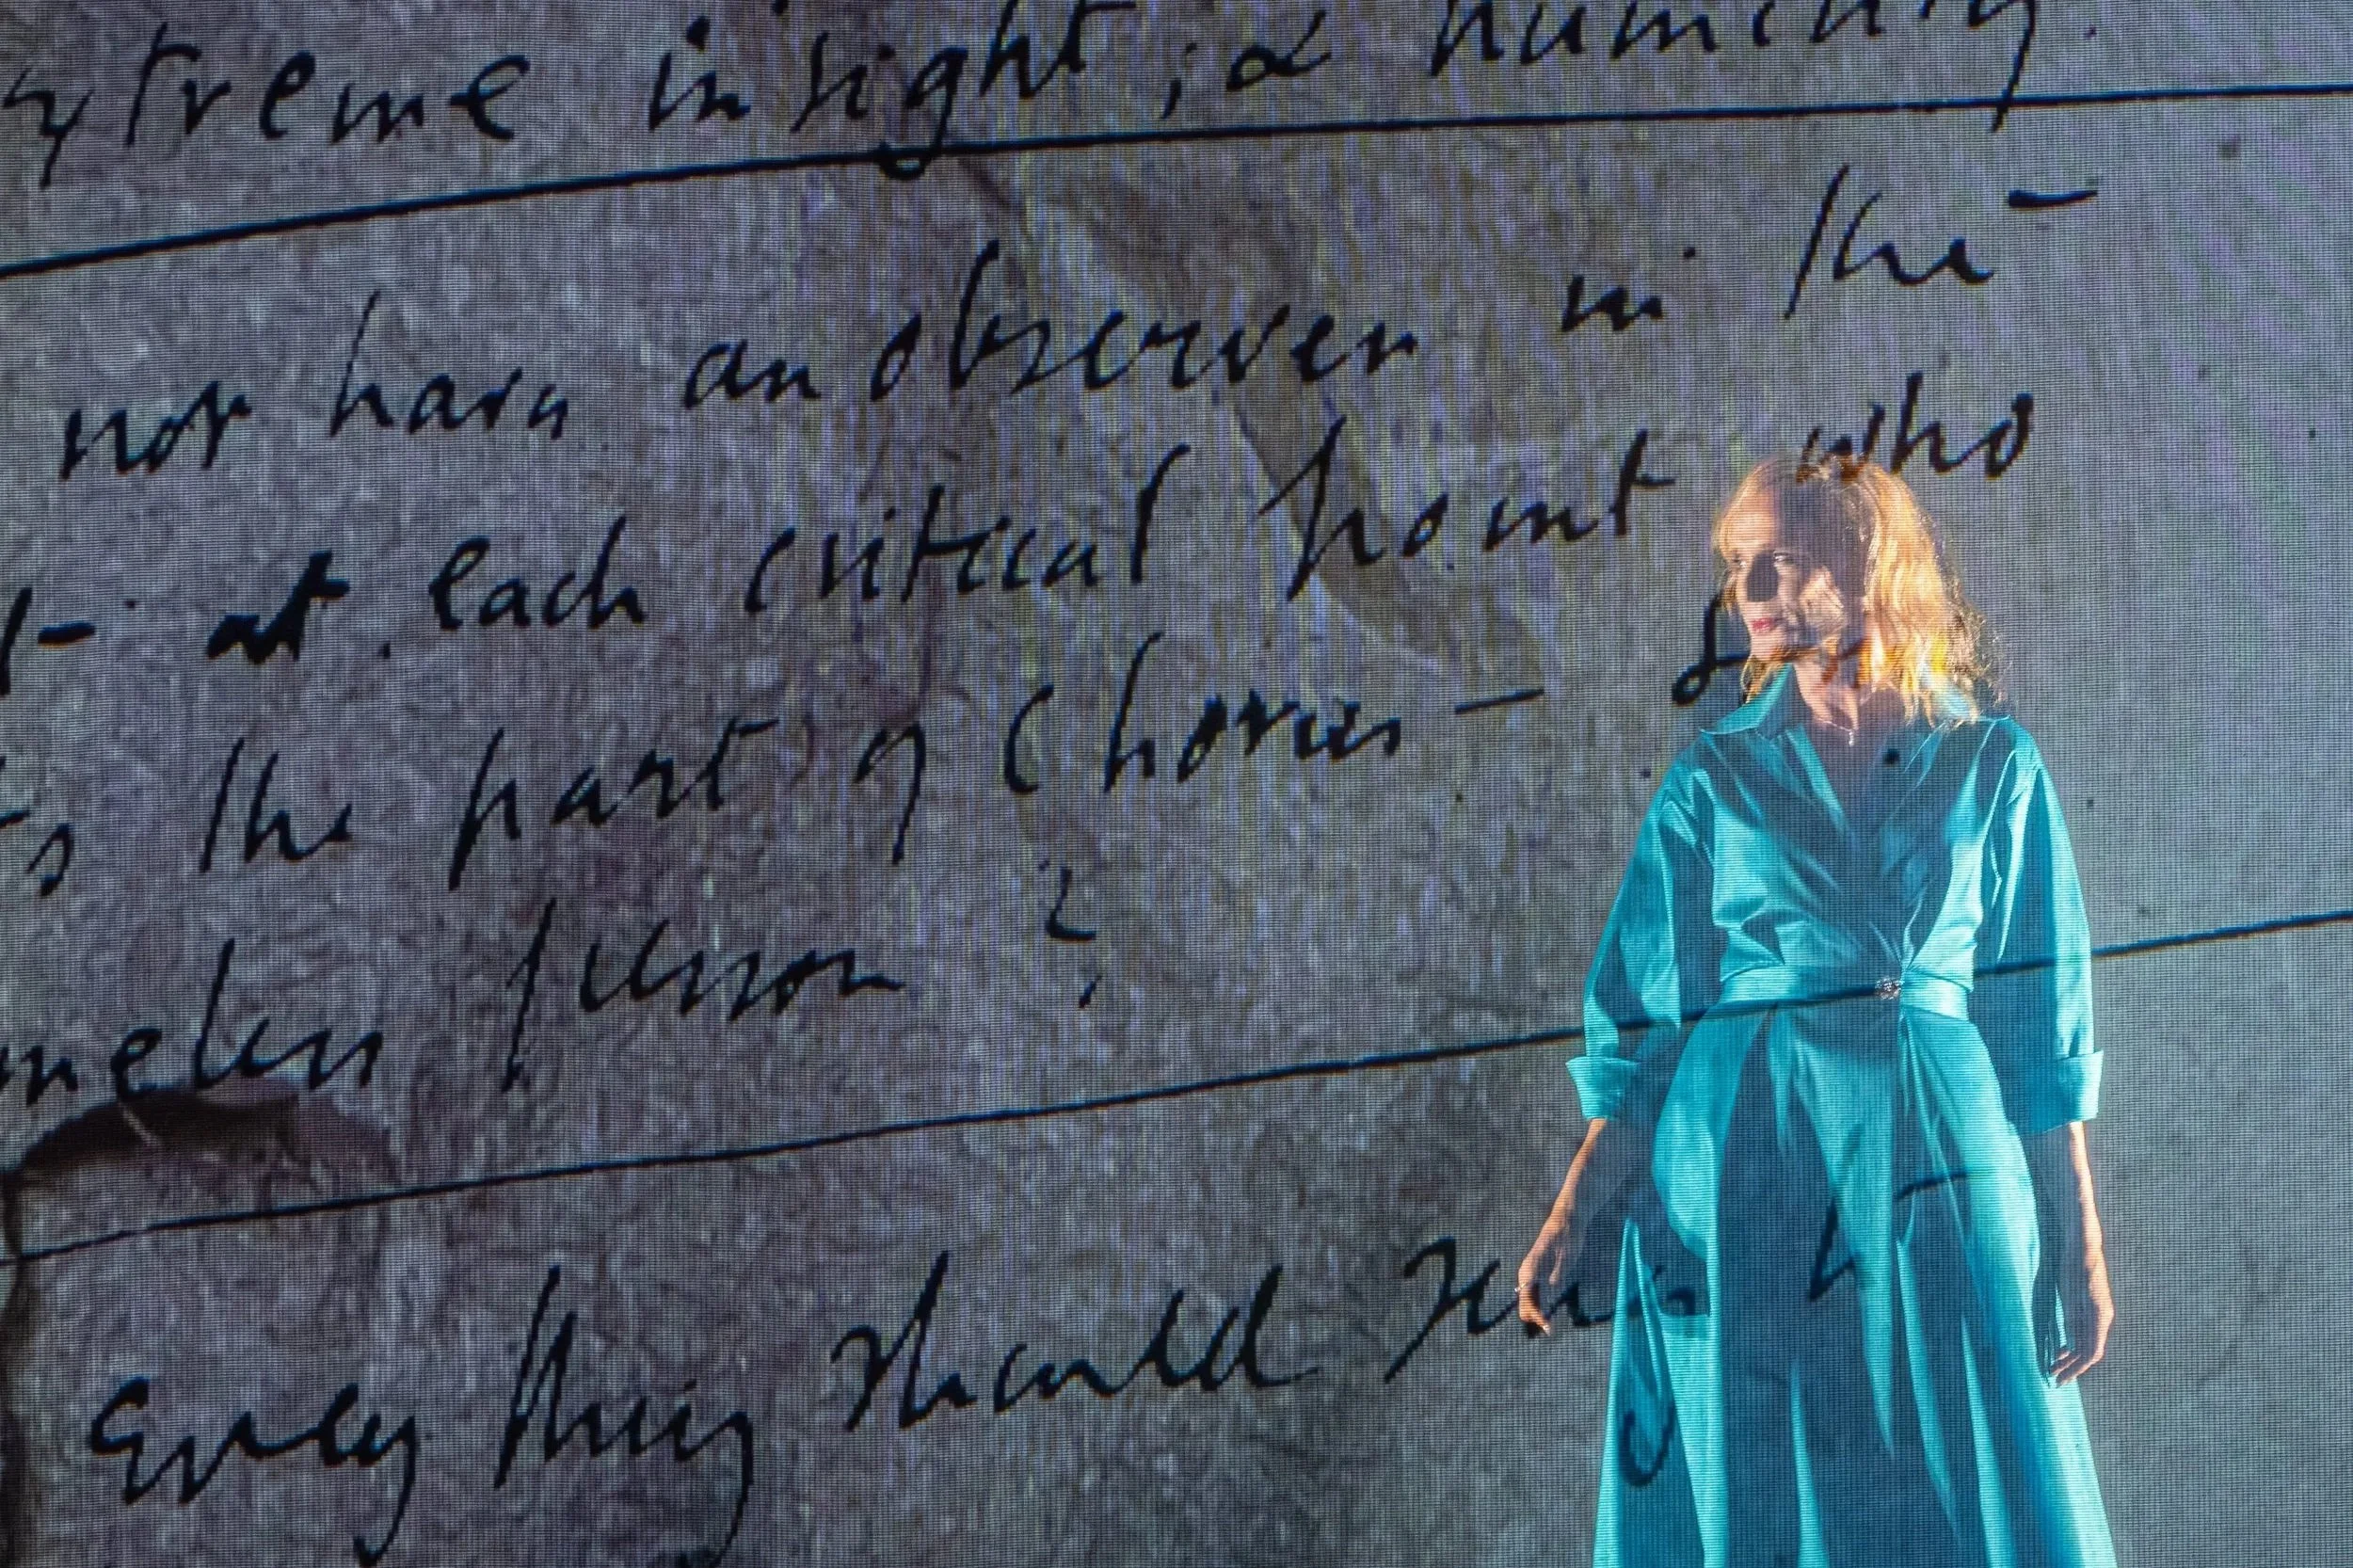 xtreme insight, & humanity.
not have an observer in the
at each critical point who
ts the part of Chorus - 
meless person?
Every thing should